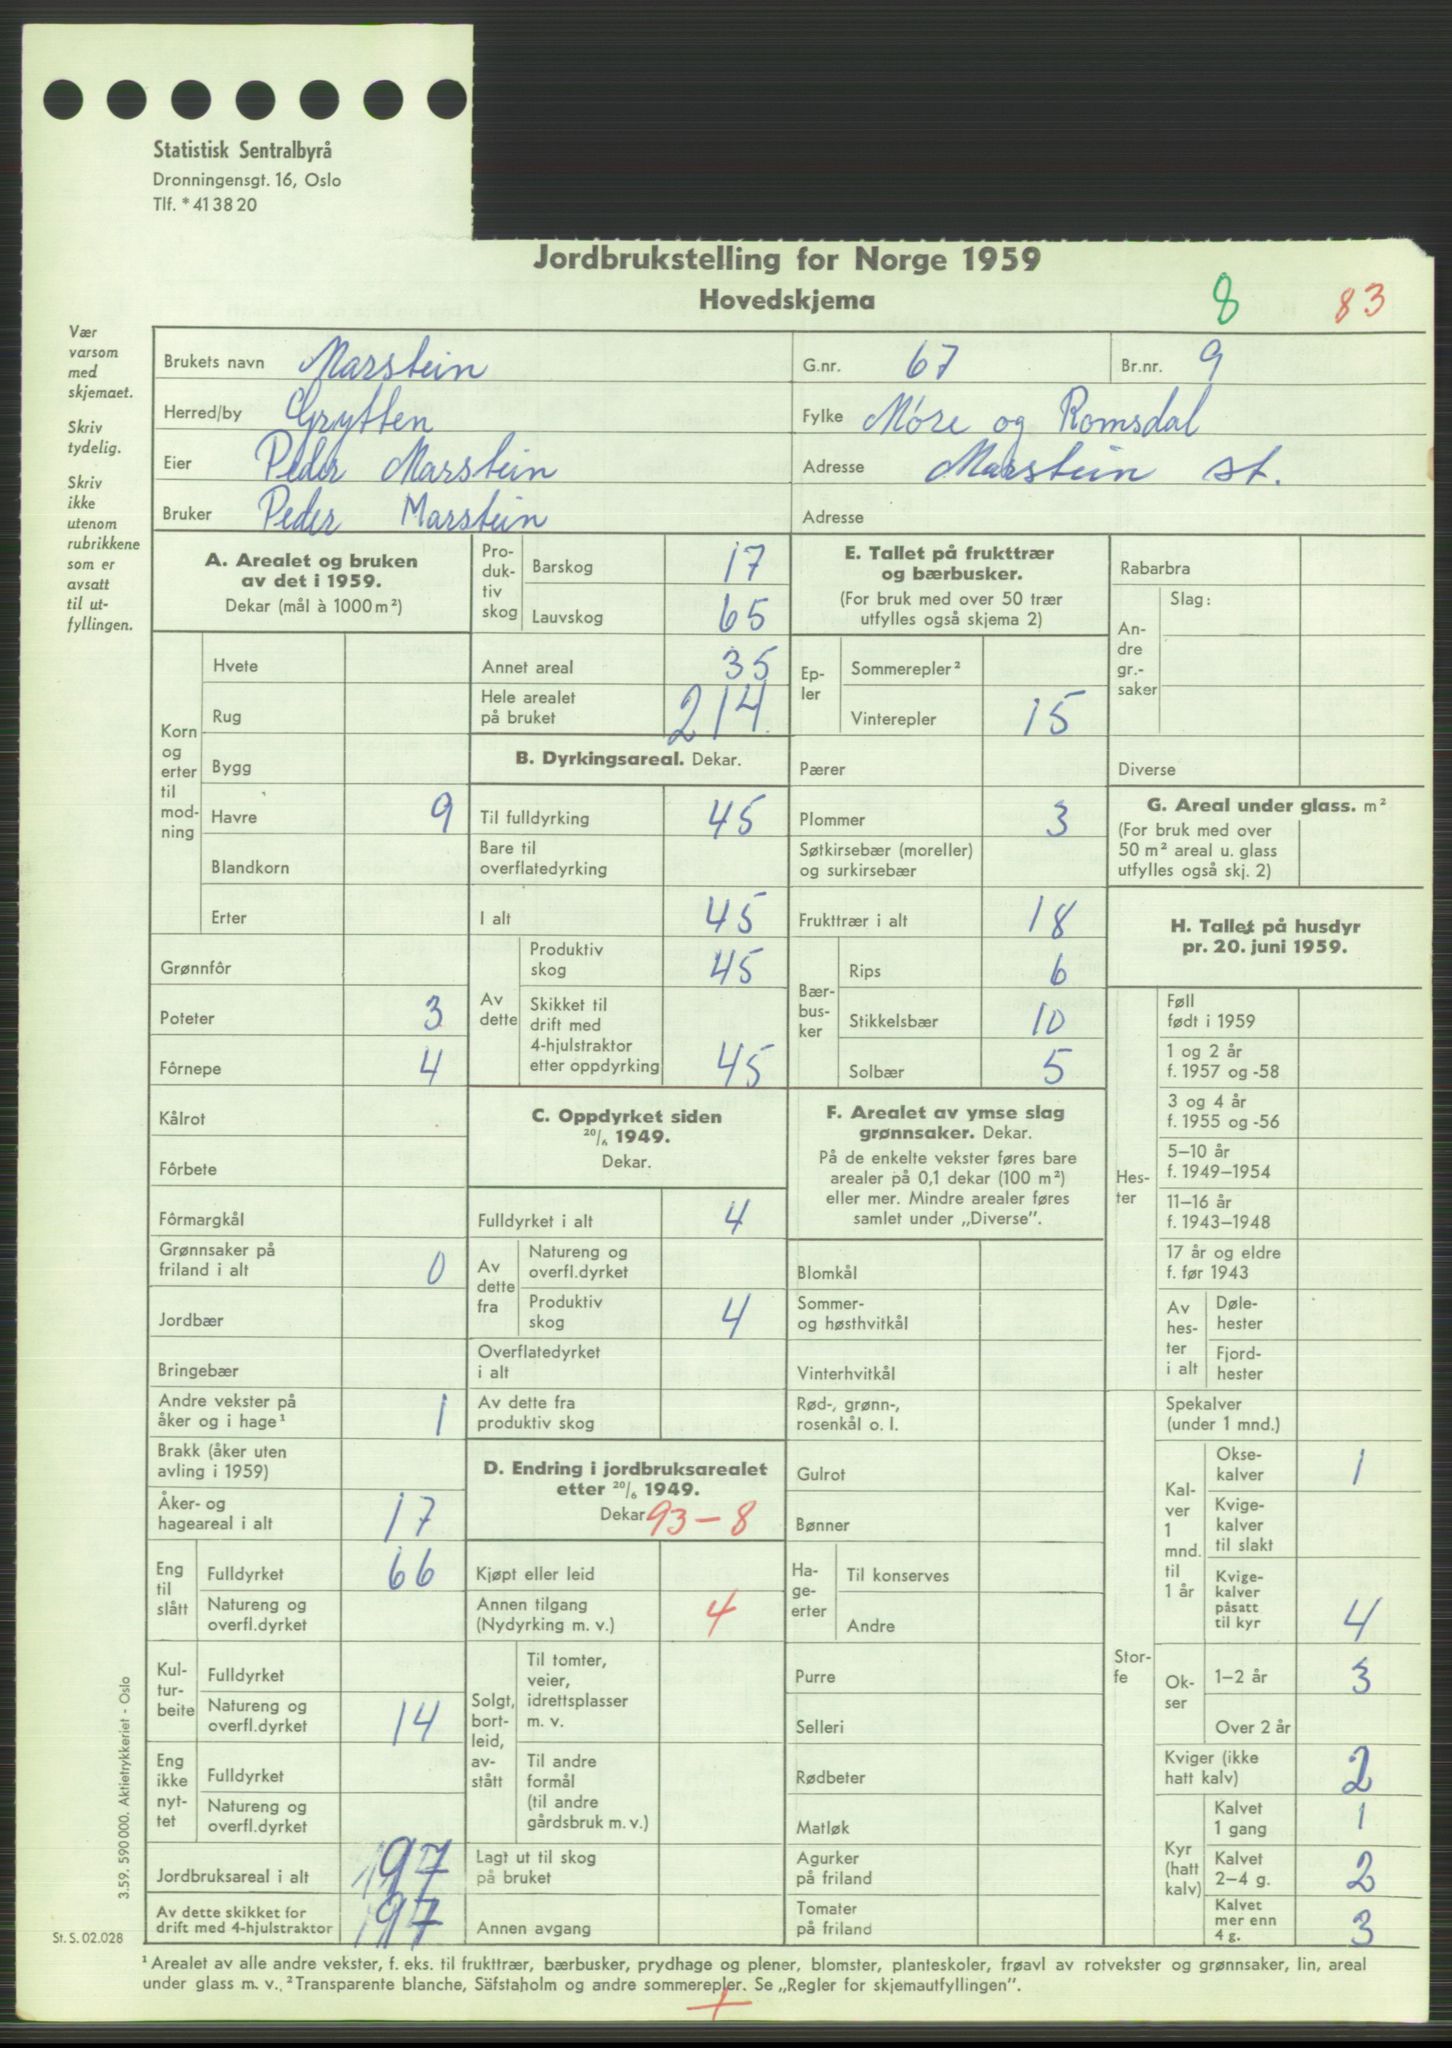 Statistisk Sentralbyrå
Dronningensgt. 16, Oslo
Tlf. * 41 38 20
Jordbrukstelling for Norge 1959
Hovedskjema
8 83
Vær
varsom
med
skjemaet.
Skriv
tydelig.
Skriv
ikke
utenom
rubrikkene
som er
avsatt
til ut-
fyllingen.
Brukets navn Marstein G.nr. 67 Br.nr. 9
Herred/by Grytten Fylke Møre og Romsdal
Eier Peder Marstein Adresse Marstein st.
Bruker Peder Marstein Adresse
A. Arealet og bruken
av det i 1959.
Dekar (mål à 1000 m²)
Korn
og
erter
til
mod-
ning
Hvete
Rug
Bygg
Havre 9
Blandkorn
Erter
Grønnfôr
Poteter 3
Fôrnepe 4
Kålrot
Fôrbete
Fôrmargkål
Grønnsaker på
friland i alt 0
Jordbær
Bringebær
Andre vekster på
åker og i hage¹ 1
Brakk (åker uten
avling i 1959)
Åker- og
hageareal i alt 17
Eng
til
slått
Fulldyrket 66
Natureng og
overfl.dyrket
Kul-
tur-
beite
Fulldyrket
Natureng og
overfl.dyrket 14
Eng
ikke
nyt-
tet
Fulldyrket
Natureng og
overfl.dyrket
Jordbruksareal i alt 97
Av dette skikket for
drift med 4-hjulstraktor 97
Pro-
duk-
tiv
skog
Barskog 17
Lauvskog 65
Annet areal 35
Hele arealet
på bruket 214
B. Dyrkingsareal. Dekar.
Til fulldyrking 45
Bare til
overflatedyrking
I alt 45
Av
dette
Produktiv
skog 45
Skikket til
drift med
4-hjulstraktor
etter oppdyrking 45
C. Oppdyrket siden
20/6 1949.
Dekar.
Fulldyrket i alt 4
Av
dette
fra
Natureng og
overfl.dyrket
Produktiv
skog 4
Overflatedyrket
i alt
Av dette fra
produktiv skog
D. Endring i jordbruksarealet
etter 20/6 1949.
Dekar 93 - 8
Kjøpt eller leid
Annen tilgang
(Nydyrking m. v.) 4
Solgt,
bort-
leid,
av-
stått
Til tomter,
veier,
idrettsplasser
m. v.
Til andre
formål
(til andre
gårdsbruk m. v.)
Lagt ut til skog
på bruket
Annen avgang
E. Tallet på frukttrær
og bærbusker.
(For bruk med over 50 trær
utfylles også skjema 2)
Ep-
ler
Sommerepler²
Vinterepler 15
Pærer
Plommer 3
Søtkirsebær (moreller)
og surkirsebær
Frukttrær i alt 18
Bær-
bus-
ker
Rips 6
Stikkelsbær 10
Solbær 5
F. Arealet av ymse slag
grønnsaker. Dekar.
På de enkelte vekster føres bare
arealer på 0,1 dekar (100 m²)
eller mer. Mindre arealer føres
samlet under „Diverse".
Blomkål
Sommer-
og høsthvitkål
Vinterhvitkål
Rød-, grønn-,
rosenkål o. l.
Gulrot
Bønner
Ha-
ge-
erter
Til konserves
Andre
Purre
Selleri
Rødbeter
Matløk
Agurker
på friland
Tomater
på friland
Rabarbra
An-
dre
gr.-
saker
Slag:
Diverse
G. Areal under glass. m²
(For bruk med over
50 m² areal u. glass
utfylles også skj. 2)
H. Tallet på husdyr
pr. 20. juni 1959.
Hes-
ter
Føll
født i 1959
1 og 2 år
f. 1957 og -58
3 og 4 år
f. 1955 og -56
5–10 år
f. 1949–1954
11–16 år
f. 1943–1948
17 år og eldre
f. før 1943
Av
hes-
ter
i alt
Døle-
hester
Fjord-
hester
Stor-
fe
Spekalver
(under 1 mnd.)
Kal-
ver
1
mnd.
til
1 år
Okse-
kalver 1
Kvige-
kalver
til slakt
Kvige-
kalver
påsatt
til kyr 4
Ok-
ser
1–2 år 3
Over 2 år
Kviger (ikke
hatt kalv) 2
Kyr
(hatt
kalv)
Kalvet
1 gang 1
Kalvet
2–4 g. 2
Kalvet
mer enn
4 g. 3
3.59. 590 000. Aktietrykkeriet - Oslo
St. S. 02.028
¹ Arealet av alle andre vekster, f. eks. til frukttrær, bærbusker, prydhage og plener, blomster, planteskoler, frøavl av rotvekster og grønnsaker, lin, areal
under glass m. v. ² Transparente blanche, Säfstaholm og andre sommerepler. Se „Regler for skjemautfyllingen".